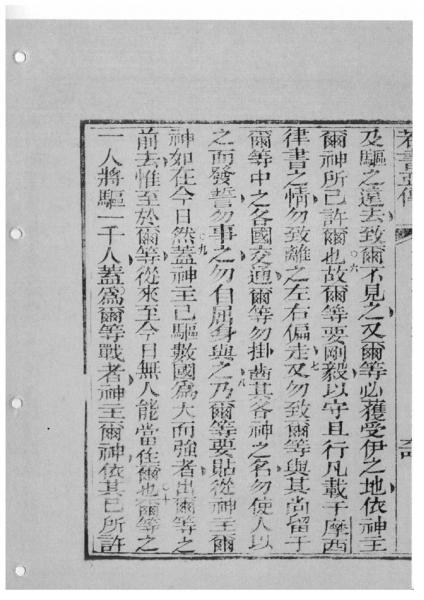 及驅之遠去致爾不見之又爾等必獲受伊之地依神主
爾神所已許爾也○六故爾等要剛毅以守且行凡載于摩西
律書之情勿致離之左右偏走○七及勿致爾等與其尚留于
爾等中之各國交通爾等勿掛齒其各神之名勿使人以
之而發誓勿事之勿自屈身與之○八乃爾等要貼從神主爾
神如在今日然○九蓋神主已驅數國為大而強者出爾等之
前去惟至於爾等從來至今日無人能當住爾也○十爾等之
一人將驅一千人蓋為爾等戰者神主爾神依其已所許